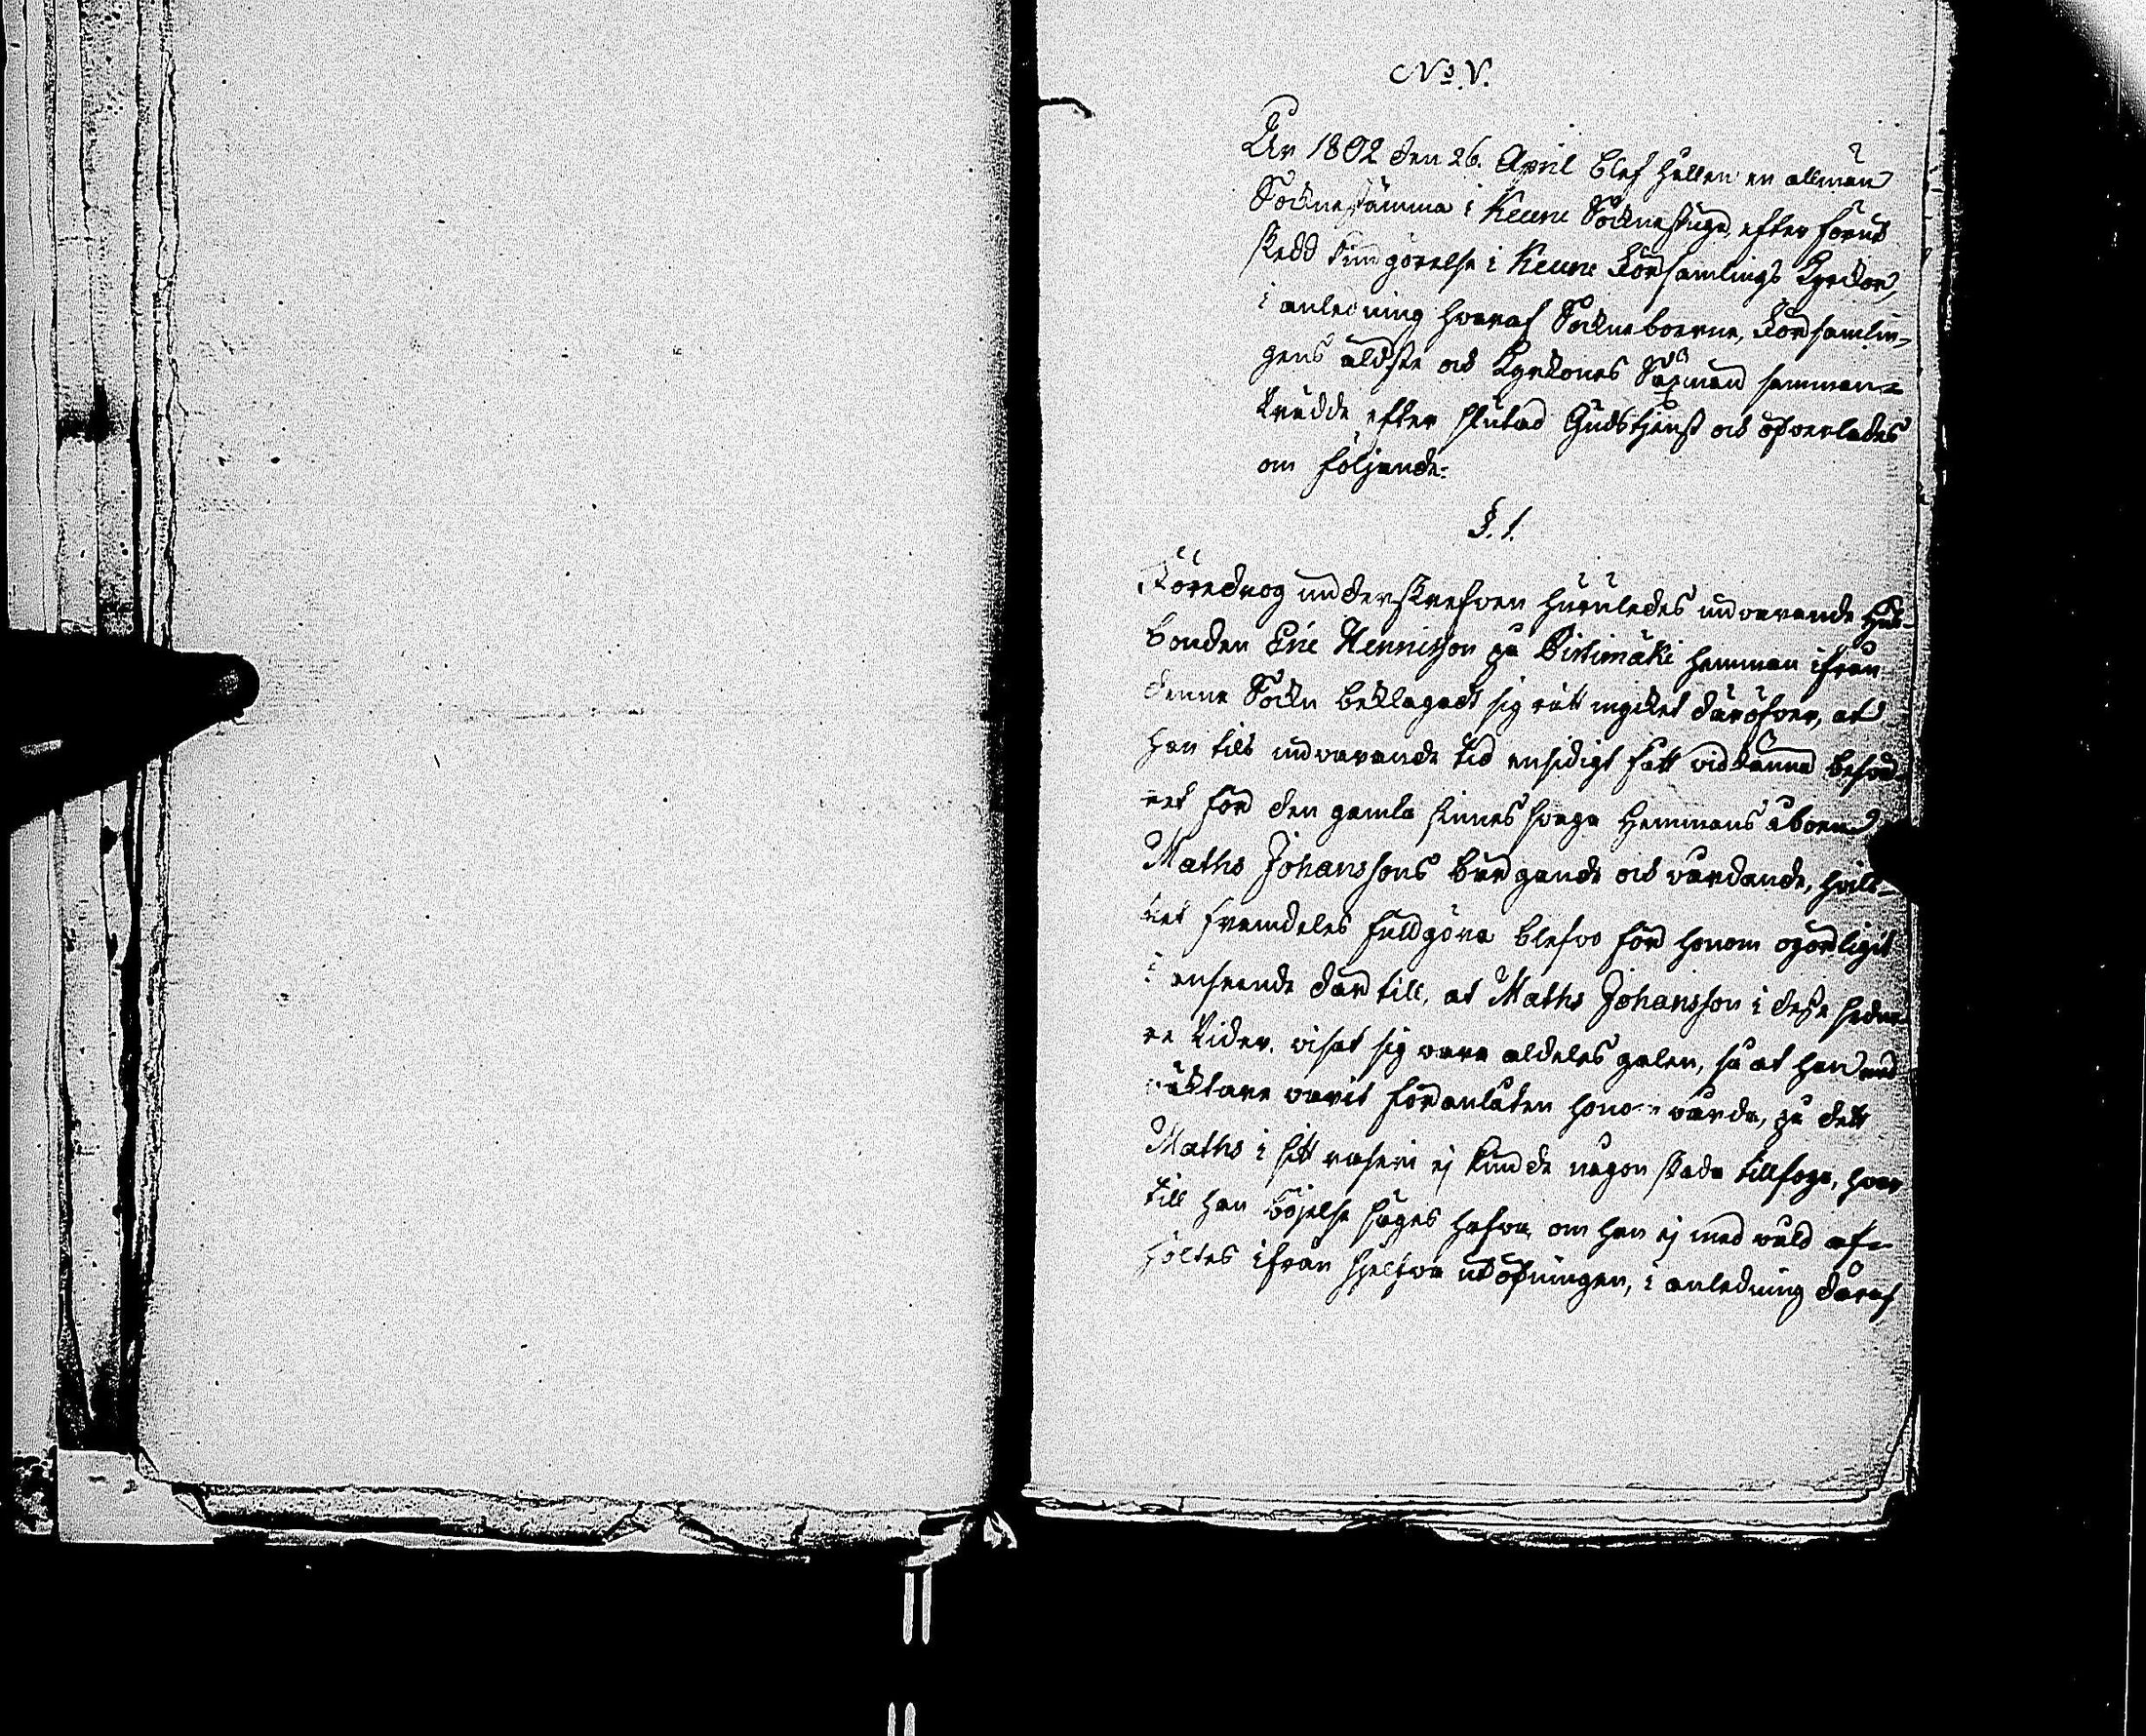 No. V.
År 1802 den 26. April blef hållen en allmän
Sockne stämma i Keuru Sockne stuga, efter förut
skedd kundgörelse i Keuru Församlings Kyrckor,
i anledning hvaraf Sockneboerne, Församlin-
gens äldste och Kyrckones Säxmän samman-
trädde efter slutad Gudstjenst och öfverlades
om följande:
§. 1.
Föredrog underskrefven huruledes nuvarande Hus-
bonden Eric Hennicsson på hemman ifrån
denne Sockn beklagadt sig rätt mycket däröfver, at
han till nuvarande tid ensidigt fått vidkänna besvä-
ret för den gamla sinnes svaga Hemmans åboen
Maths Johanssons bärgande och vårdande, hvilc-
ket framdeles fullgöra blefvo för honom ogörligit
i anseende därtill, at Maths Johansson i dessa sedna-
re tider, visat sig vara aldeles galen, så at han med
väcktare varit föranlåten honom vårda, på det
Maths i sitt raseri ej kunde någon skada tillfoga, hvar
till han böjelse säges hafva, om han ej med våld af-
höltes ifrån sjelfva utöfningen, i anledning däraf